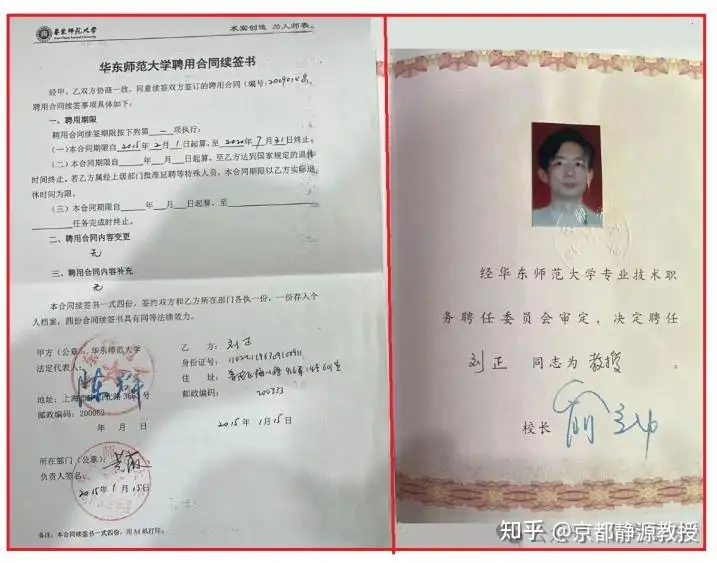 华东师范大学
求实创造 为人师表
华东师范大学聘用合同续签书
经甲、乙双方协商一致，同意续签双方签订的聘用合同（编号：
聘用合同续签事项具体如下：
一、聘用期限
聘用合同续签期限按下列第 一 项执行：
（一）本合同期限自 2015 年 2 月 1 日起算，至 2020 年 7 月 31 日终止；
（二）本合同期限自 年 月 日起算，至乙方达到国家规定的退休
时间终止。若乙方属经上级部门批准延聘等特殊人员，本合同期限以乙方实际退
休时间为限。
（三）本合同期限自 年 月 日起算，至
任务完成时终止。
二、聘用合同内容变更
无
三、聘用合同内容补充
无
本合同续签书一式四份，签约双方和乙方所在部门各执一份，一份存入个
人档案，四份合同续签书具有同等法律效力。
甲方（公章）：华东师范大学
法定代表人：
地址：上海 北路 3663 号
邮政编码：200062
年 月 日
乙 方：刘正
身份证号：
住 址：
邮政编码：200333
2015 年 1 月 15 日
所在部门（公章）：
负责人签名：
2015 年 1 月 15 日
备注：本合同续签书一式四份，用 A4 纸打印。
经华东师范大学专业技术职
务聘任委员会审定，决定聘任
刘正 同志为 教授 。
校长
知乎 @京都静源教授